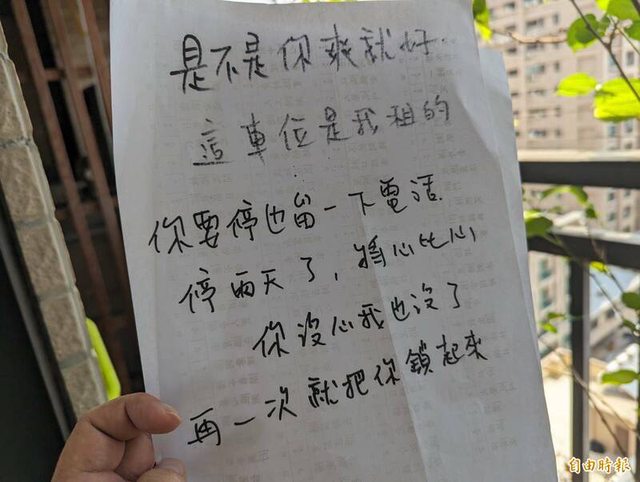 是不是你爽就好
這車位是我租的
你要停也留一下電話
停兩天了，將心比心
你沒心我也沒了
再一次就把你鎖起來
自由時報